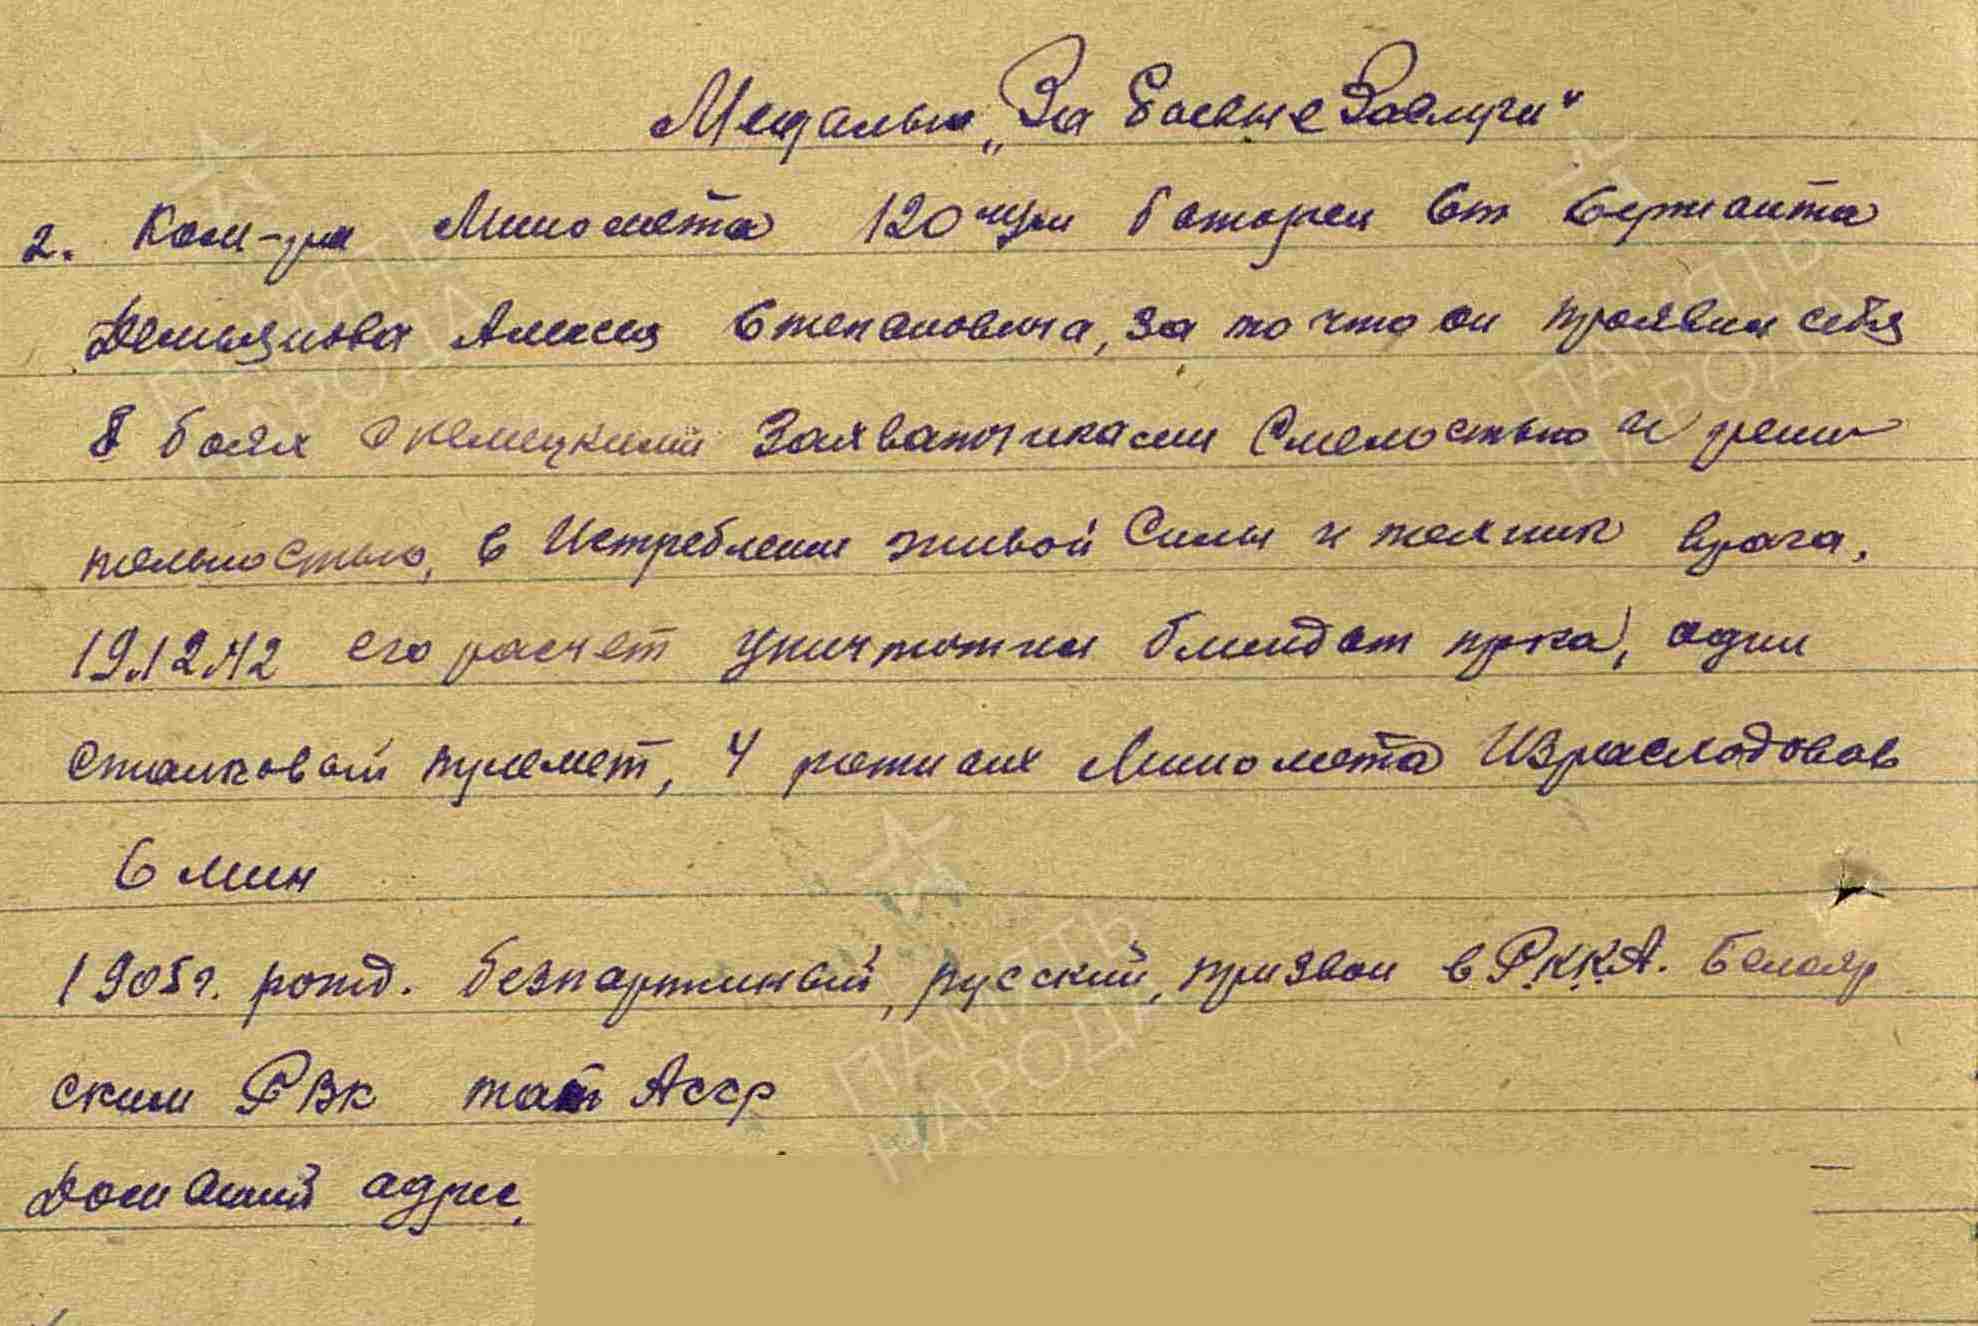 Медалью „За боевые Заслуги"
2. Ком-ра Миномета 120 м/м батареи Ст Сержанта
Демьянова Алексея Степановича, за то что он проявил себя
В боях с немецкими Захватчиками Смелостью и реши
тельностью, в Истреблении живой Силы и техник врага,
19.12.42 его расчет уничтожил блиндаж пр-ка, один
станковый пулемет, 4 ротных Миномета Израсходовав
6 мин
1905г. рожд. безпартиный, русский, призван в Р.К.К.А. Белояр
ским РВК тат Асср
Домашний адрес.
ПАМЯТЬ
НАРОДА
ПАМЯТЬ
НАРОДА
ПАМЯТЬ
НАРОДА